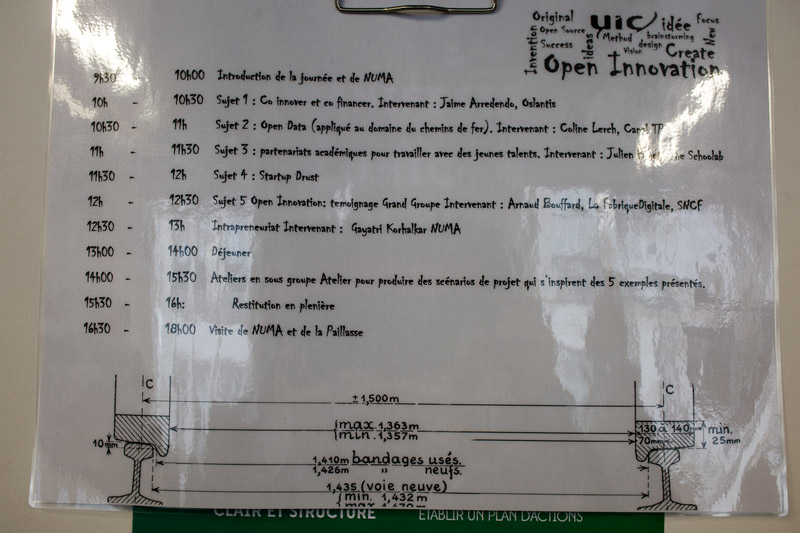 Original uic idée Focus
Open Source Method brainstorming New
Invention Success ideas Vision design Create
Open Innovation
9h30 10h00 Introduction de la journée et de NUMA
10h - 10h30 Sujet 1 : Co innover et co financer. Intervenant : Jaime Arredendo, Oslantis
10h30 - 11h Sujet 2 : Open Data (appliqué au domaine du chemins de fer). Intervenant : Coline Lerch,
11h - 11h30 Sujet 3 : partenariats académiques pour travailler avec des jeunes talents. Intervenant : Julien Schoolab
11h30 - 12h Sujet 4 : Startup Drust
12h - 12h30 Sujet 5 Open Innovation: temoignage Grand Groupe Intervenant : Arnaud Bouffard, La FabriqueDigitale, SNCF
12h30 - 13h Intrapreneuriat Intervenant : Gayatri Korhalkar NUMA
13h00 - 14h00 Déjeuner
14h00 - 15h30 Ateliers en sous groupe Atelier pour produire des scénarios de projet qui s'inspirent des 5 exemples présentés.
15h30 - 16h: Restitution en plenière
16h30 - 18h00 Visite de NUMA et de la Paillasse
C C
±1,500m
max. 1,363m
min. 1,357m
130 à 140mm min.
10mm 70mm 25mm
1,410m bandages usés.
1,426m » neufs.
1,435 (voie neuve)
min. 1,432m
max 1,470m
CLAIR ET STRUCTURÉ ÉTABLIR UN PLAN D'ACTIONS